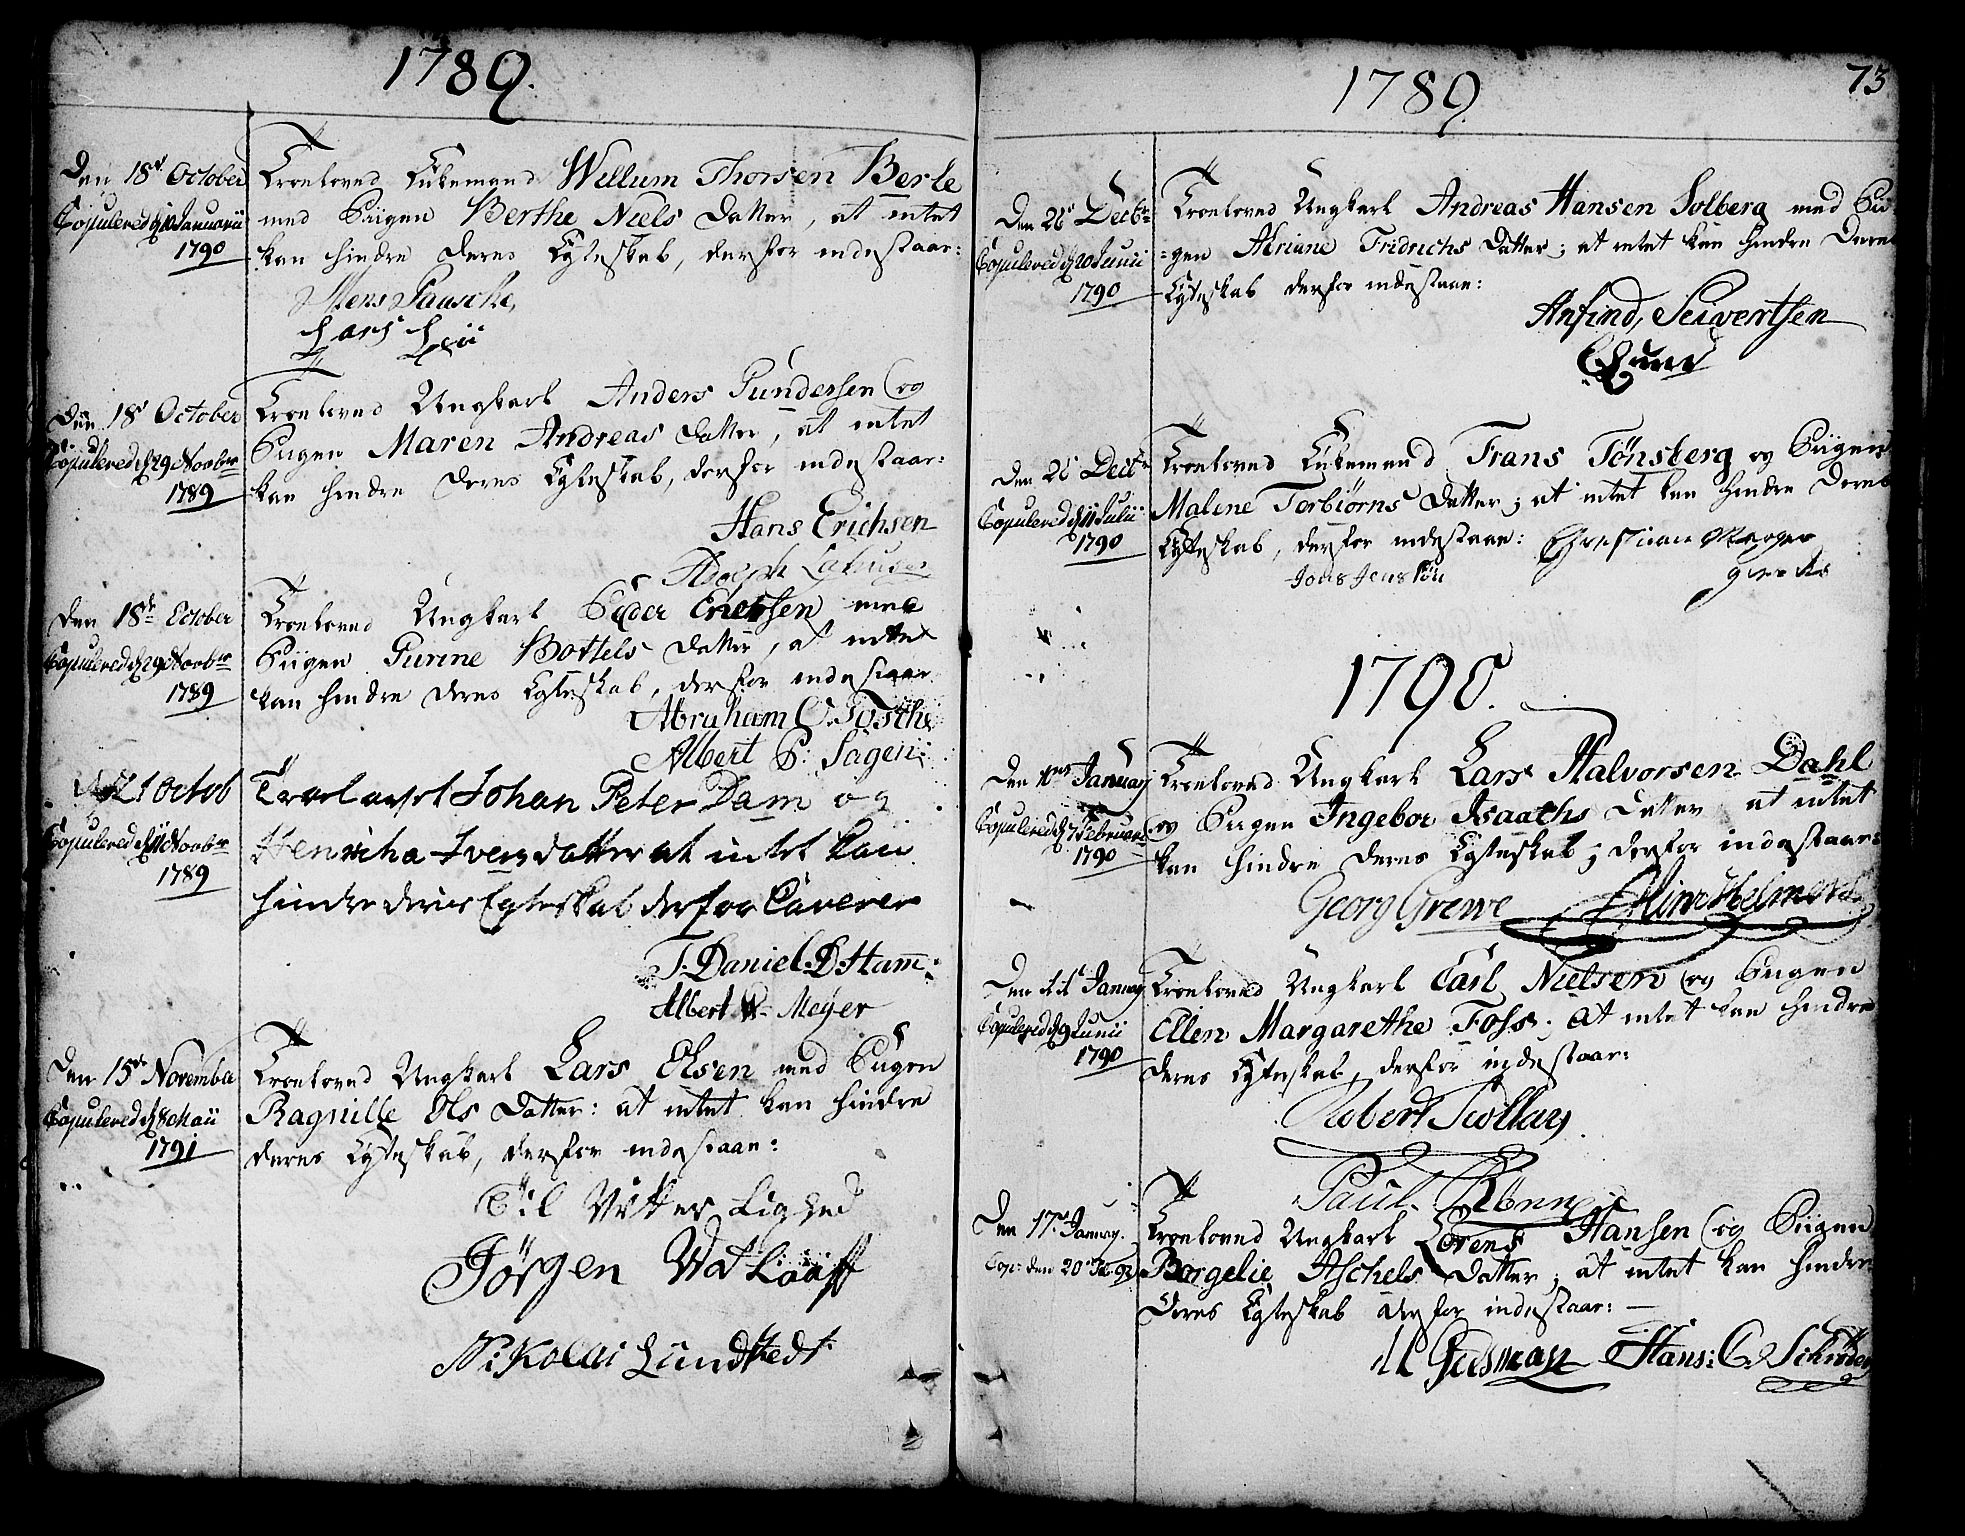 1789.
Den 18de October
Copulered d 10 Januarii
1790
Troeloved Enkemand Willum Thorsen Berle
med Piigen Berthe Niels Datter, at intet
kan hindre deres Egteskab, derfor indestaar:
Mens Pausche,
Lars
Den 18de October
Copulered d 29 Novbr
1789
Troeloved Ungkarl Anders Gundersen og
Piigen Maren Andreas Datter, at intet
kan hindre deres Egteskab, derfor indestaar:
Hans Erichsen
Adolph
Den 18de October
Copulered d 29 Novbr
1789
Troeloved Ungkarl Peder Erichsen med
Piigen Gurine Bottels Datter, at intet
kan hindre deres Egteskab, derfor indestaar
Abraham C. Tosche
Albert P. Sagen
21 Octob
Copulered d 11 Novbr
1789
Troelovet Johan Peter Dam og
Henricha Ivers datter at intet kan
hindre deris Egteskab derfor Caverer
T. Daniel. D. Ham:
Albert W. Meyer
Den 15de November
Copulered d 8 Maii
1791
Troeloved Ungkarl Lars Olsen med Piigen
Ragnille Ols Datter: at intet kan hindre
deres Egteskab, derfor indestaar:
Til Vitterlighed
Jörgen Watlaaff
Nikolai Lundstedt
1789
73
Den 26de Decbr
Copulered d 20 Junii
1790
Troeloved Ungkarl Andreas Hansen Solberg med Pii-
-gen Adriane Fridrichs Datter; at intet kan hindre deres
Egteskab derfor indestaar:
Anfind, Seivertsen
Den 26 Decbr
Copulered d 11 Julii
1790
Troeloved Enkemand Frans Tönsberg og Piigen
Malene Torbiörns Datter; at intet kan hindre deres
Egteskab, derfor indestaar: Christian Meyer
Jons Jensön
1790.
Den 1ste January
Copulered d 7 Februarii
1790
Troeloved Ungkarl Lars Halvorsen Dahl
og Piigen Ingebor Isaachs Datter at intet
kan hindre deres Egteskab; derfor indestaar:
Georg Grewe Hinr Helmers
Den 11te January
Copulered d 9 Junii
1790
Troeloved Ungkarl Carl Nielsen og Piigen
Ellen Margarethe Foss. at intet kan hindre
deres Egteskab, derfor indestaar:
Robert Scollay
Paul Rönne
Den 17de January.
Cop: den 20
Troeloved Ungkarl Lorens Hansen og Piigen
Borgelie Aschels Datter; at intet kan hindre
deres Egteskab derfor indestaar: —
M Giesman Hans: C. Schröder